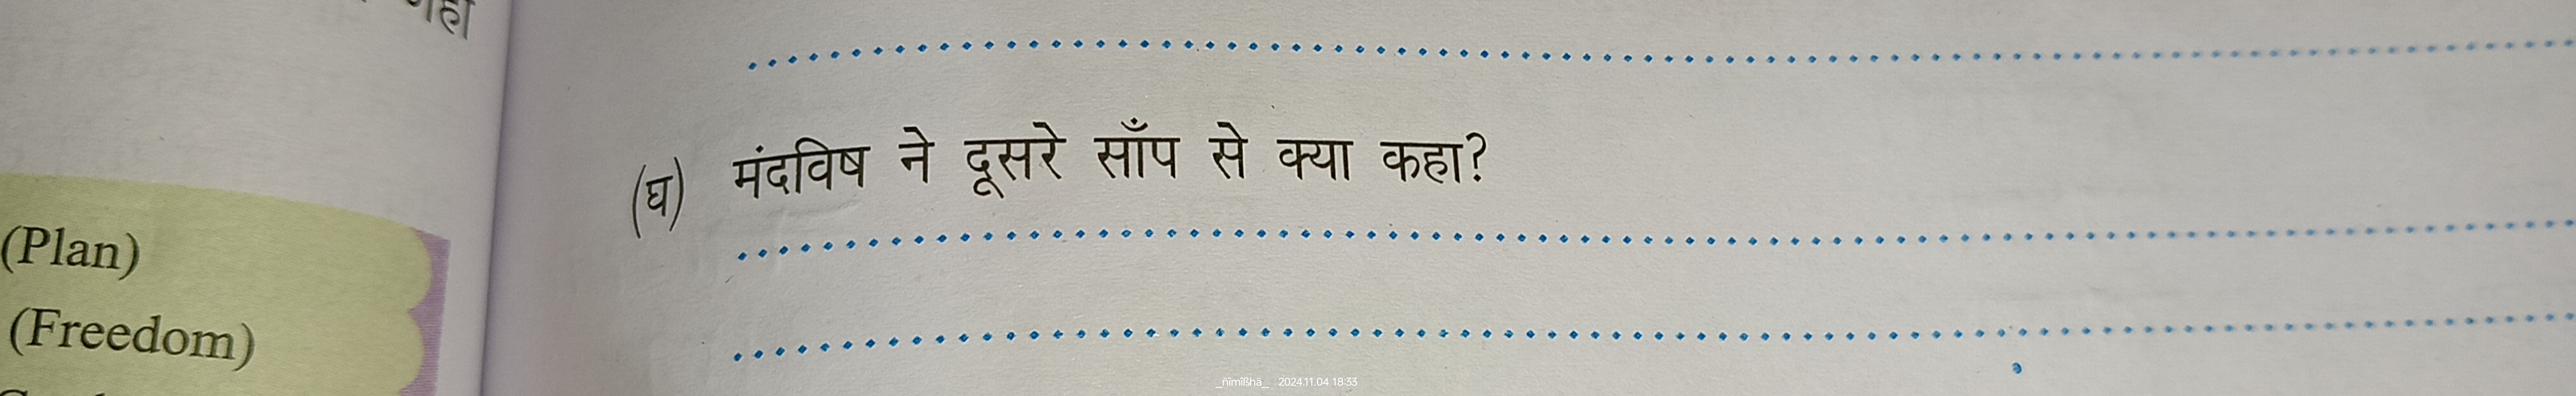 (घ) मंदविष ने दूसरे साँप से क्या कहा?
(Plan)
(Freedom)
_ñïmïßhä_ 2024.11.04 18:33